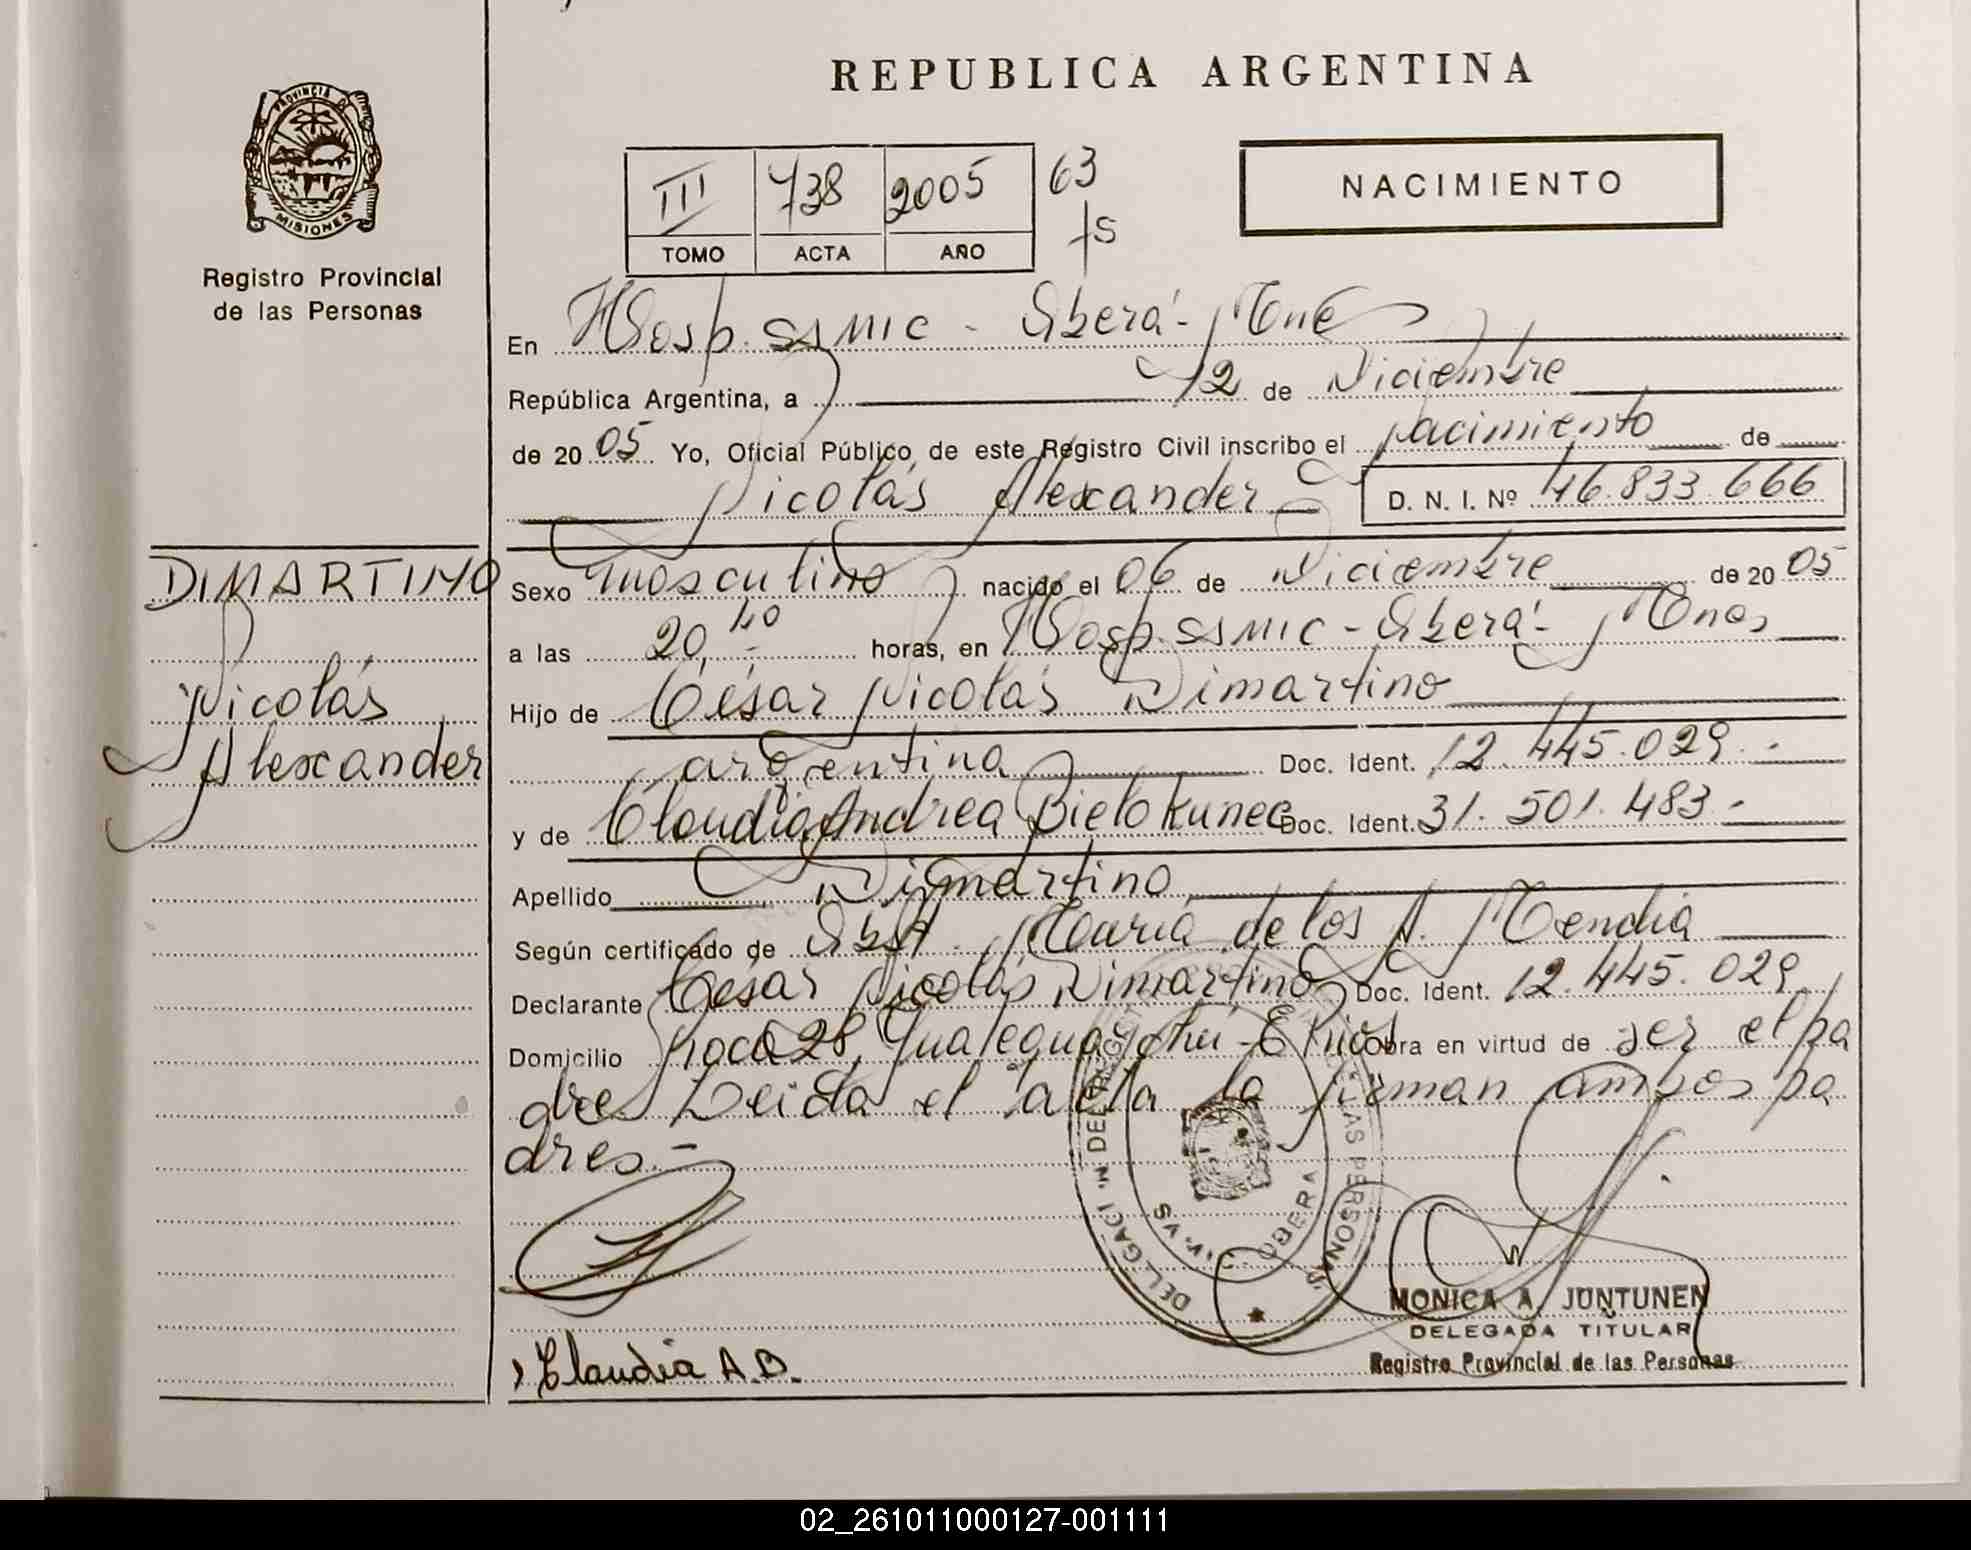 REPUBLICA ARGENTINA
PROVINCIA DE
MISIONES
Registro Provincial
de las Personas
III 738 2005 63
TOMO ACTA AÑO fs
NACIMIENTO
En Hosp. SSMIC - Oberá - Mnes
República Argentina, a 12 de Diciembre
de 20 05 Yo, Oficial Público de este Registro Civil inscribo el nacimiento de
Nicolás Alexander D. N. I. Nº 46.833.666
DIMARTINO
Nicolás
Alexander
Sexo masculino nacido el 06 de Diciembre de 20 05
a las 20,40 horas, en Hosp. SSMIC - Oberá - Mnes
Hijo de César Nicolás Dimartino
argentina Doc. Ident. 12.445.029.-
y de Claudia Andrea Bielokunec Doc. Ident. 31.501.483.-
Apellido Dimartino
Según certificado de Obst. María de los A. Mendia
Declarante César Nicolás Dimartino Doc. Ident. 12.445.029
Domicilio Roca 28, Gualeguaychú - E Ríos obra en virtud de ser el pa
dre Leida el acta la firman ambos pa
dres.-
DE LAS PERSONAS
OBERA
Claudia A.B.
MONICA A. JUNTUNEN
DELEGADA TITULAR
Registro Provincial de las Personas
02_261011000127-001111